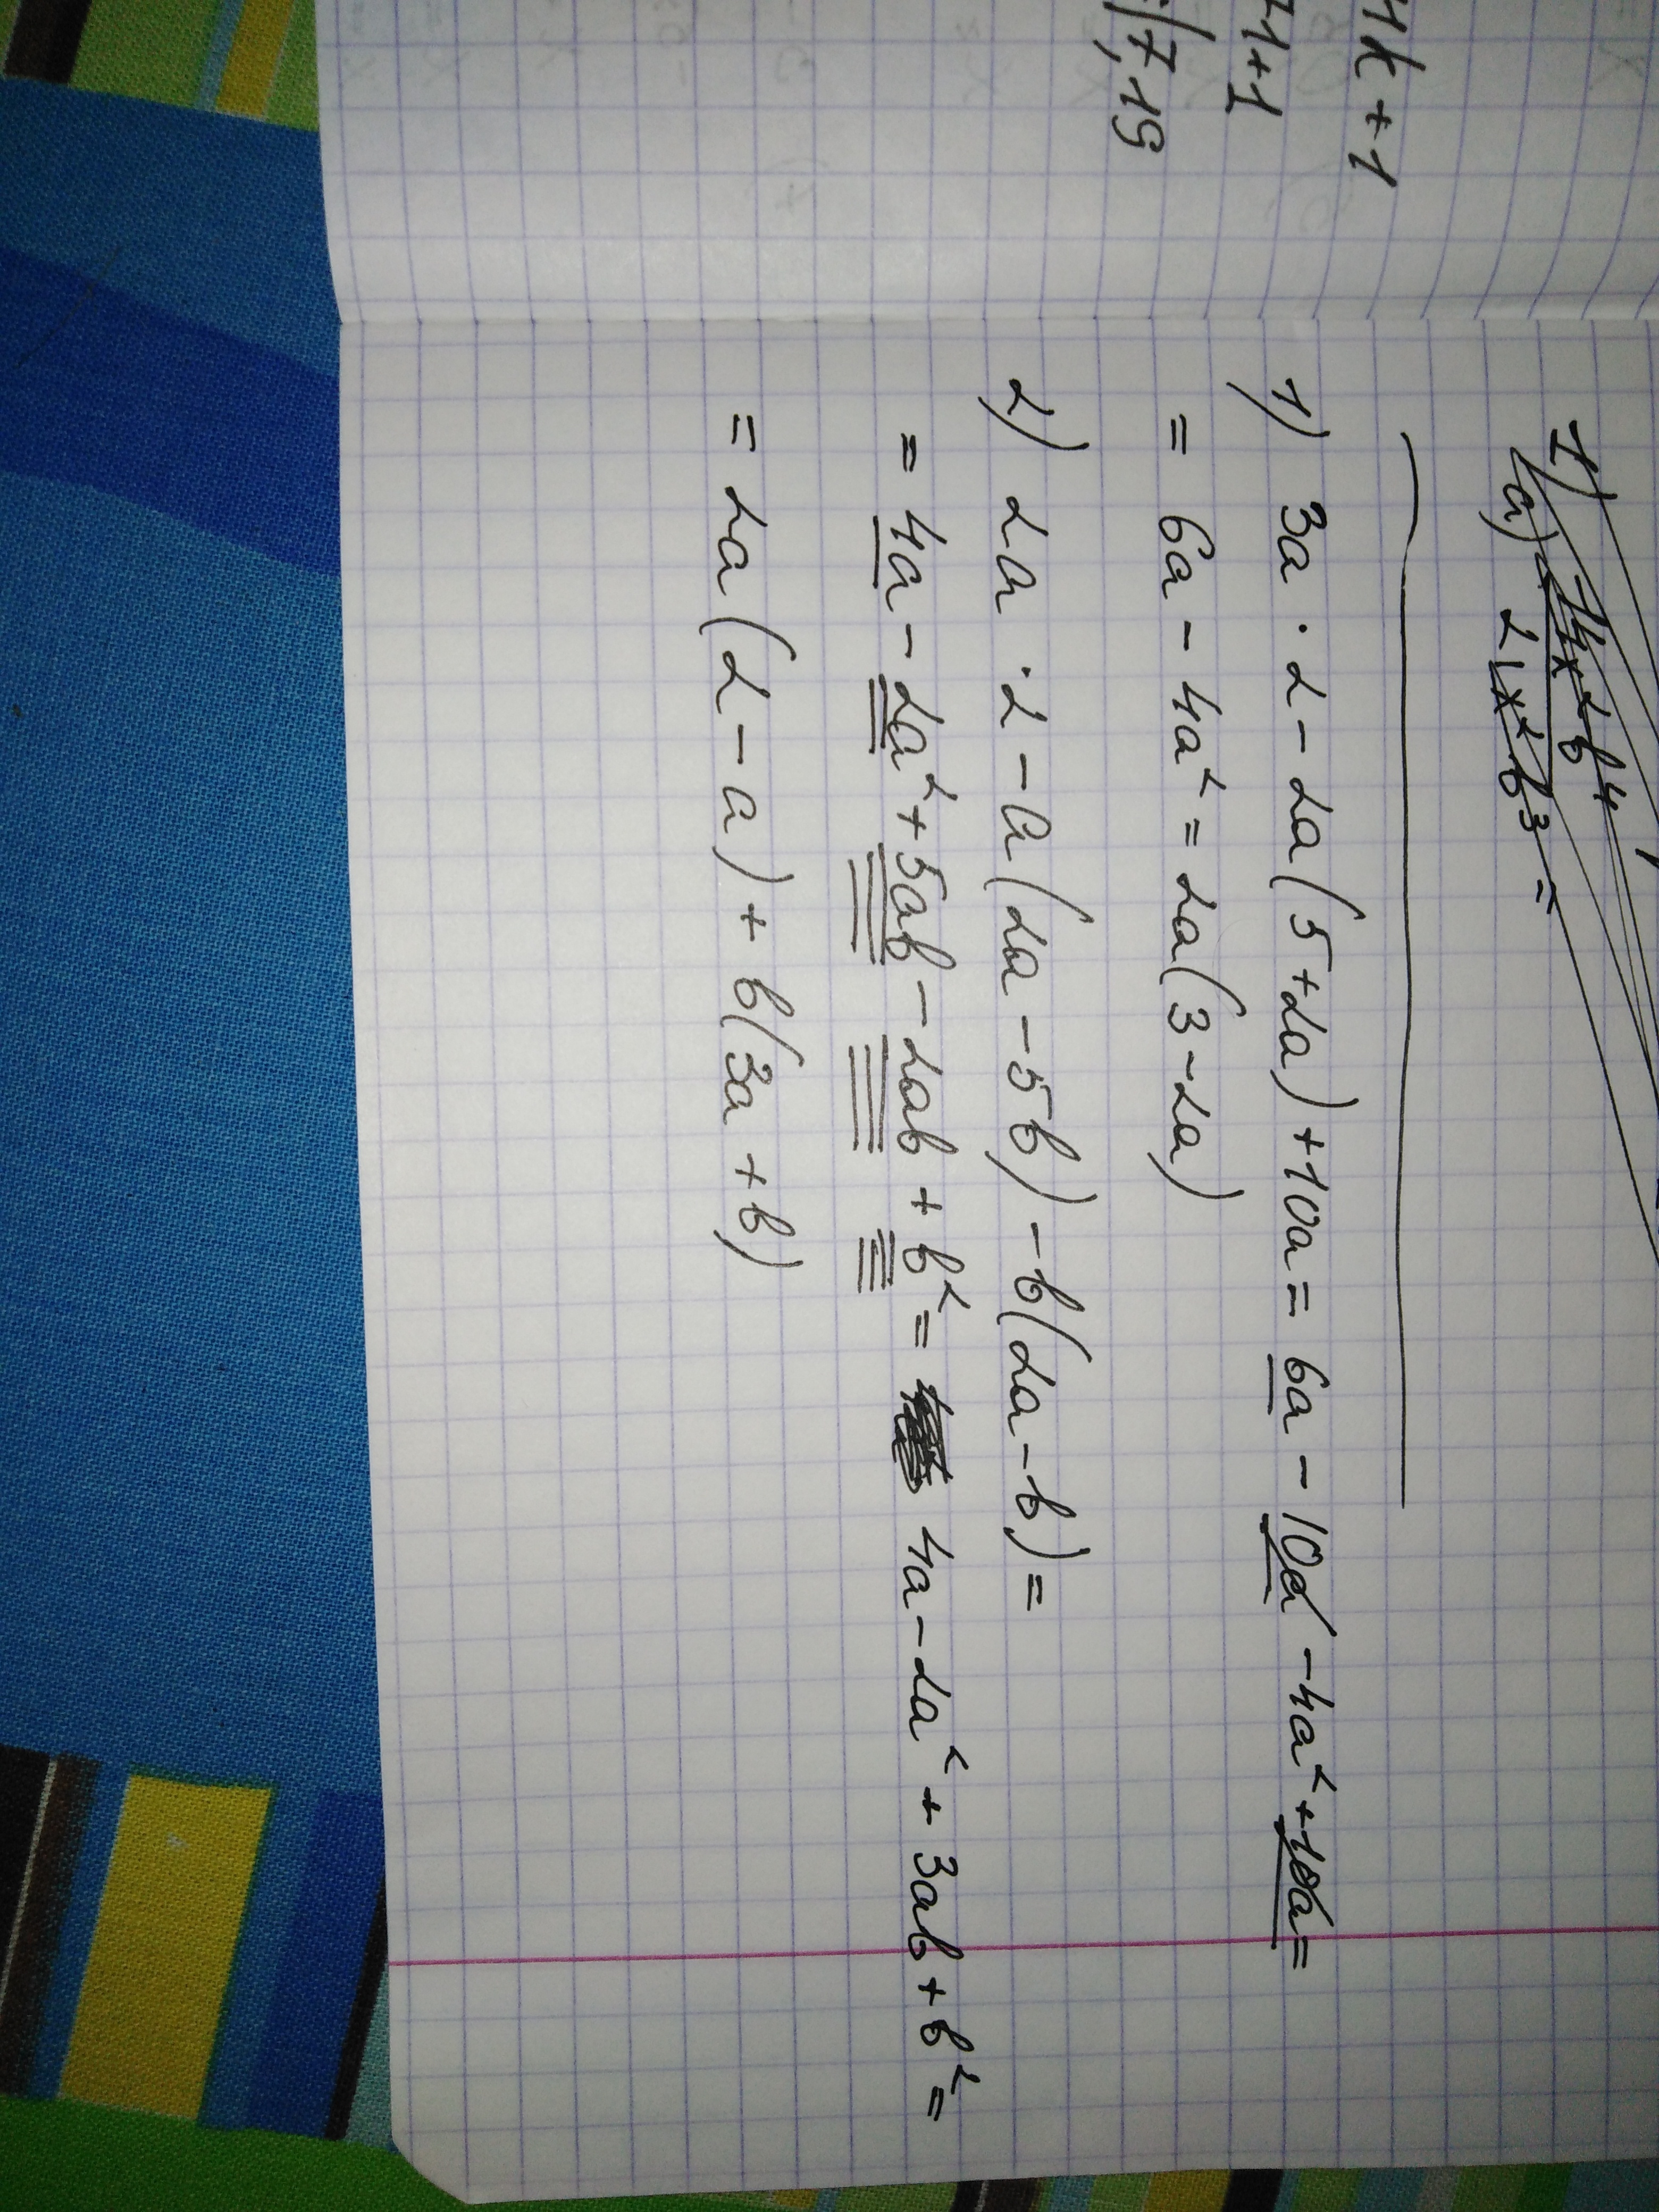 4k + 1
71+1
7,19
1)
a) 14x²b⁴
21x²b³ =
1) 3a · 2 - 2a(5+2a) + 10a = 6a - 10a - 4a² + 10a =
= 6a - 4a² = 2a(3-2a)
2) 2a · 2 - a(2a - 5b) - b(2a - b) =
= 4a - 2a² + 5ab - 2ab + b² = 4a - 2a² + 3ab + b² =
= 2a(2 - a) + b(3a + b)